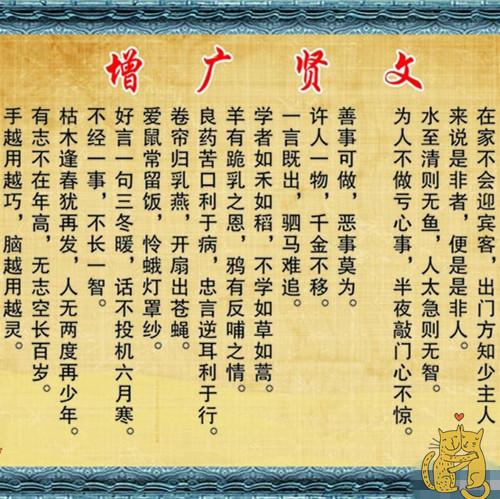 增广贤文
在家不会迎宾客，出门方知少主人
来说是非者，便是是非人。
水至清则无鱼，人太急则无智。
为人不做亏心事，半夜敲门心不惊。
善事可做，恶事莫为。
许人一物，千金不移。
一言既出，驷马难追。
学者如禾如稻，不学如草如蒿。
羊有跪乳之恩，鸦有反哺之情。
良药苦口利于病，忠言逆耳利于行。
卷帘归乳燕，开扇出苍蝇。
爱鼠常留饭，怜蛾灯罩纱。
好言一句三冬暖，话不投机六月寒。
不经一事，不长一智。
枯木逢春犹再发，人无两度再少年。
有志不在年高，无志空长百岁。
手越用越巧，脑越用越灵。